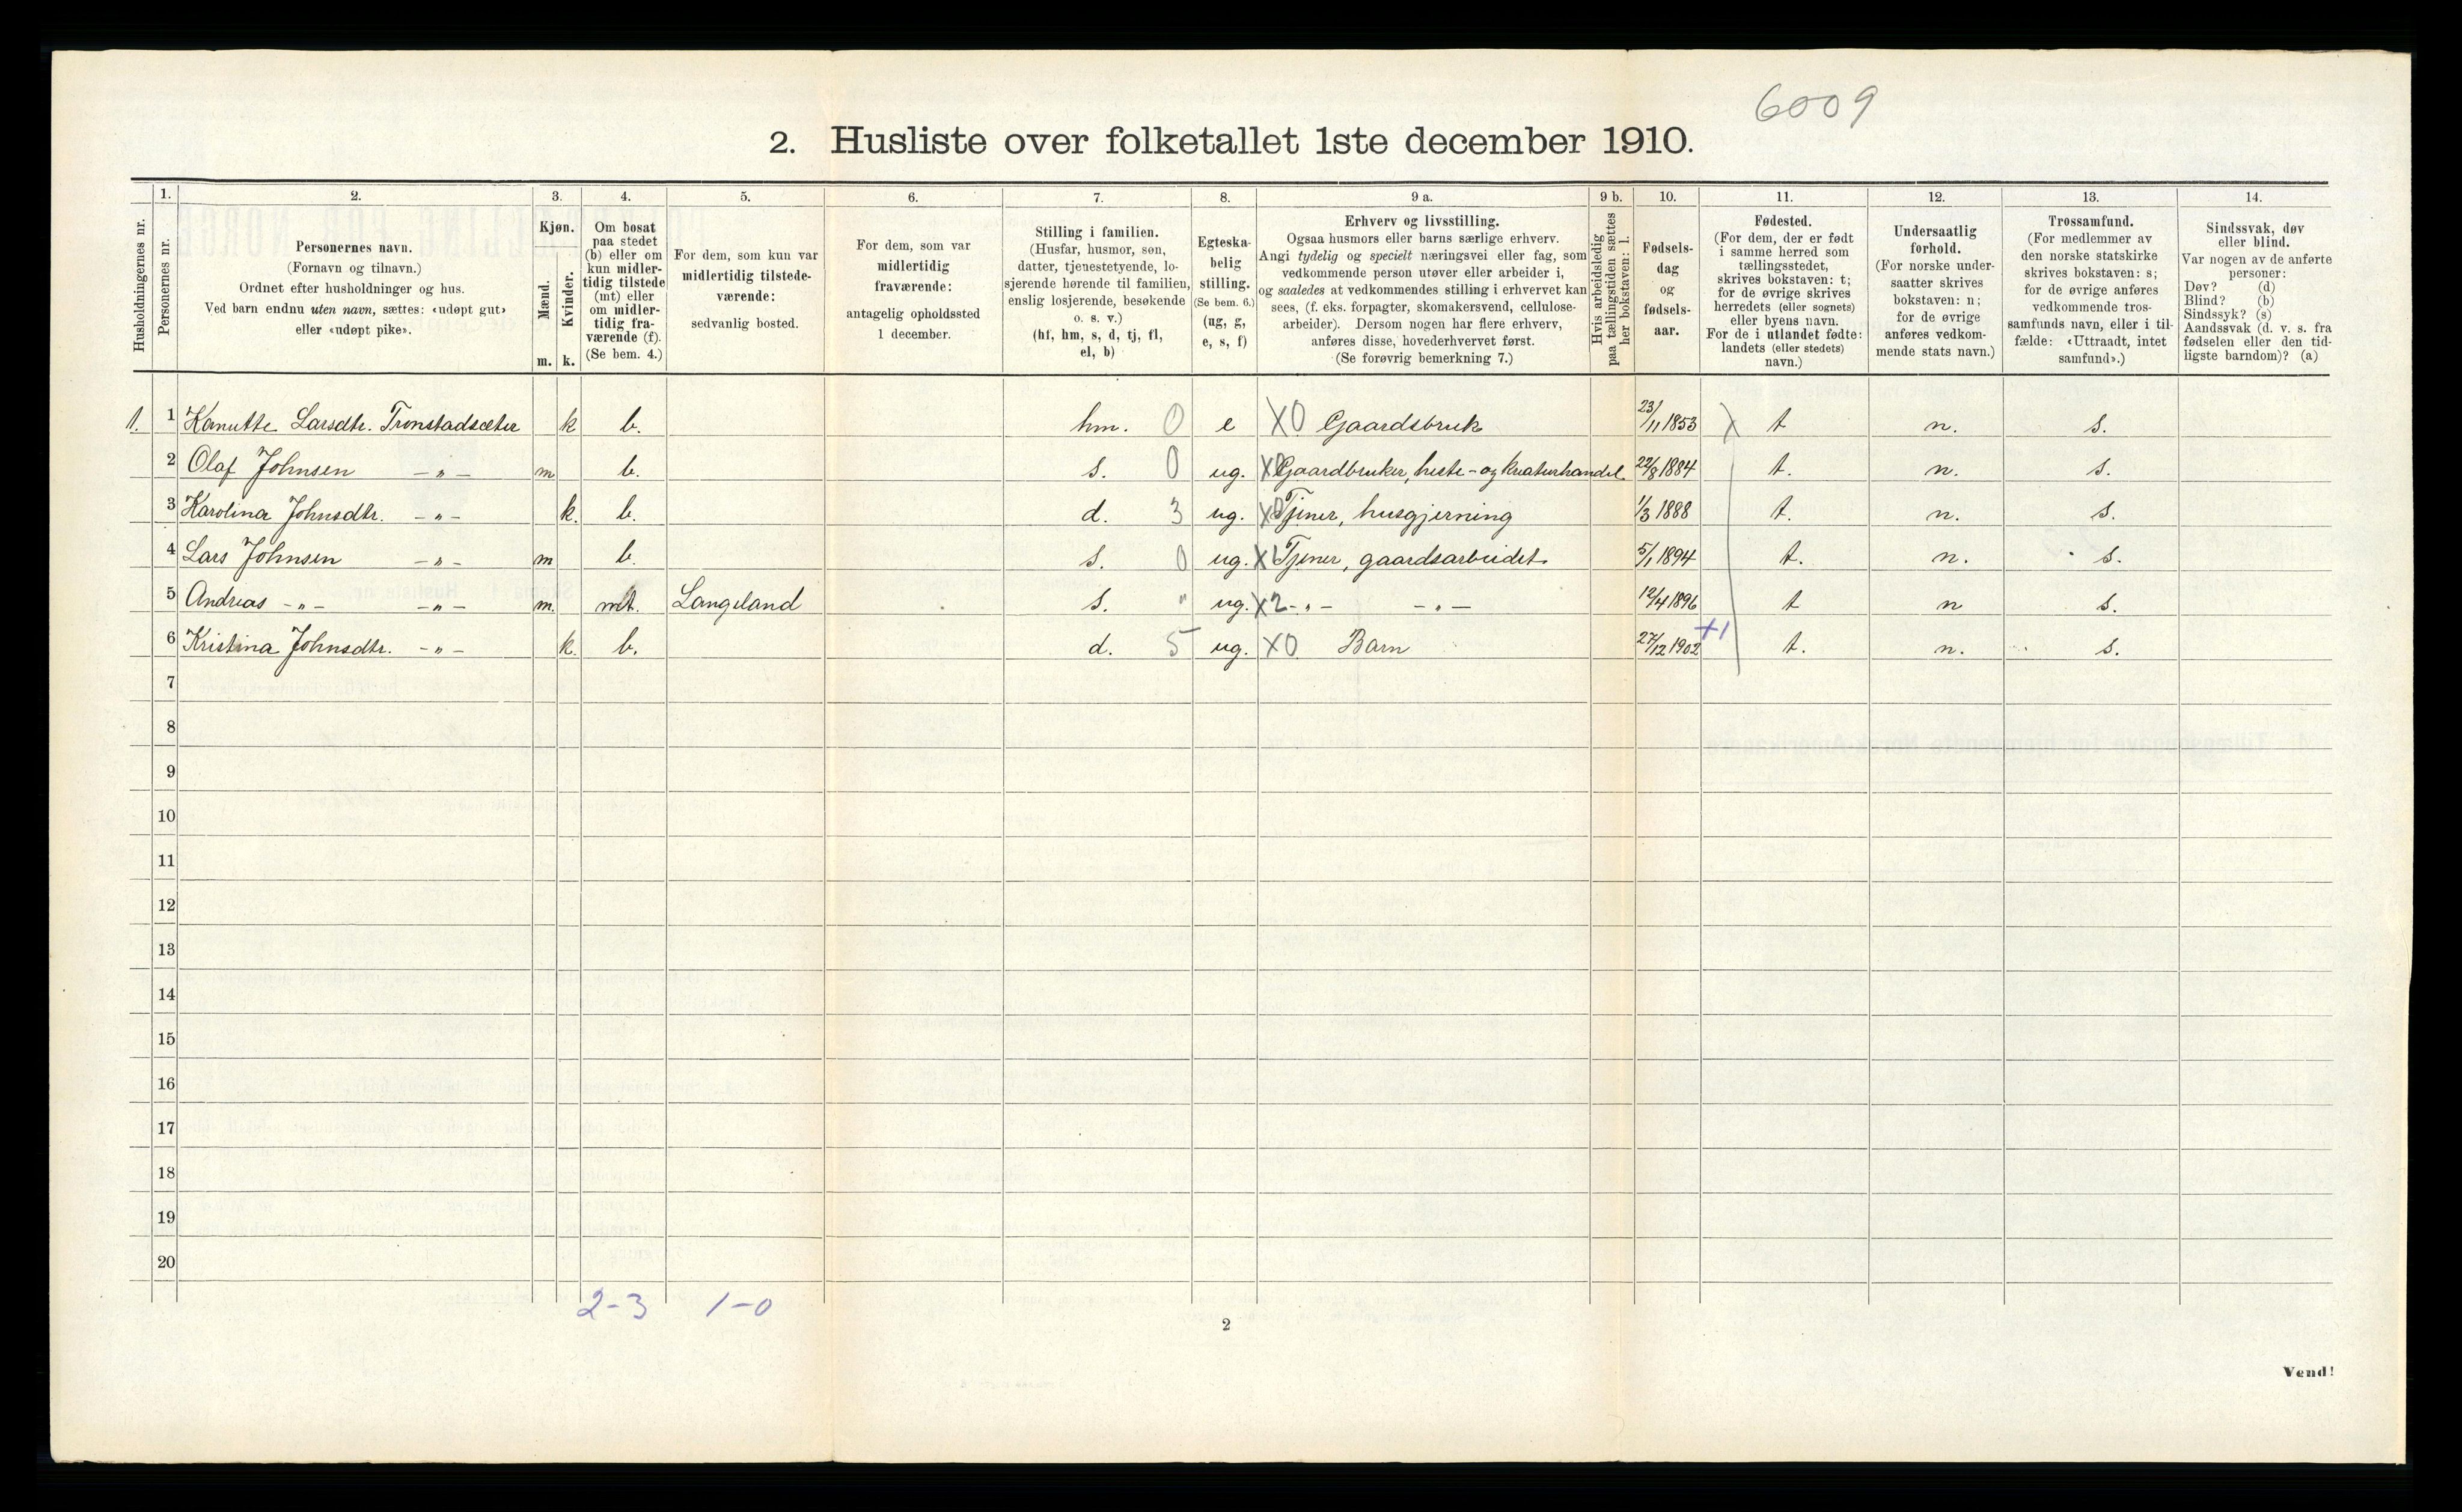 6009
2. Husliste over folketallet 1ste december 1910.
Husholdningernes nr.
1.
Personernes nr.
2.
Personernes navn.
(Fornavn og tilnavn.)
Ordnet efter husholdninger og hus.
Ved barn endnu uten navn, sættes: «udøpt gut»
eller «udøpt pike».
3.
Kjøn.
Mænd.
Kvinder.
m. k.
4.
Om bosat
paa stedet
(b) eller om
kun midler-
tidig tilstede
(mt) eller
om midler-
tidig fra-
værende (f).
(Se bem. 4.)
5.
For dem, som kun var
midlertidig tilstede-
værende:
sedvanlig bosted.
6.
For dem, som var
midlertidig
fraværende:
antagelig opholdssted
1 december.
7.
Stilling i familien.
(Husfar, husmor, søn,
datter, tjenestetyende, lo-
sjerende hørende til familien,
enslig losjerende, besøkende
o. s. v.)
(hf, hm, s, d, tj, fl,
el, b)
8.
Egteska-
belig
stilling.
(Se bem. 6.)
(ug, g,
e, s, f)
9 a.
Erhverv og livsstilling.
Ogsaa husmors eller barns særlige erhverv.
Angi tydelig og specielt næringsvei eller fag, som
vedkommende person utøver eller arbeider i,
og saaledes at vedkommendes stilling i erhvervet kan
sees, (f. eks. forpagter, skomakersvend, cellulose-
arbeider). Dersom nogen har flere erhverv,
anføres disse, hovederhvervet først.
(Se forøvrig bemerkning 7.)
9 b.
Hvis arbeidsledig
paa tællingstiden sættes
her bokstaven: l.
10.
Fødsels-
dag
og
fødsels-
aar.
11.
Fødested.
(For dem, der er født
i samme herred som
tællingsstedet,
skrives bokstaven: t;
for de øvrige skrives
herredets (eller sognets)
eller byens navn.
For de i utlandet fødte:
landets (eller stedets)
navn.)
12.
Undersaatlig
forhold.
(For norske under-
saatter skrives
bokstaven: n;
for de øvrige
anføres vedkom-
mende stats navn.)
13.
Trossamfund.
(For medlemmer av
den norske statskirke
skrives bokstaven: s;
for de øvrige anføres
vedkommende tros-
samfunds navn, eller i til-
fælde: «Uttraadt, intet
samfund».)
14.
Sindssvak, døv
eller blind.
Var nogen av de anførte
personer:
Døv? (d)
Blind? (b)
Sindssyk? (s)
Aandssvak (d. v. s. fra
fødselen eller den tid-
ligste barndom)? (a)
1. 1 Kanutte Larsdtr. Tronstadsæter k b. hm. 0 e X0 Gaardsbruk 23/11 1853 X t n. s.
2 Olaf Johnsen -"- m b. s. 0 ug. X0 Gaardbruker, heste- og kreaturhandel 22/8 1884 t. n. s.
3 Karolina Johnsdtr. -"- k. b. d. 3 ug. X Tjener, husgjerning 1/3 1888 t. n. s.
4 Lars Johnsen -"- m b. s. 0 ug. X Tjener, gaardsarbeidet. 5/1 1894 t. n. s.
5 Andreas -"- -"- m. mt. Langeland s. " ug. X2 -"- -"- 12/4 1896 t n s.
6 Kristina Johnsdtr. -"- k. b. d. 5 ug. X0 Barn 27/12 1902 +1 t. n. s.
7
8
9
10
11
12
13
14
15
16
17
18
19
20
2-3 1-0
2
Vend!